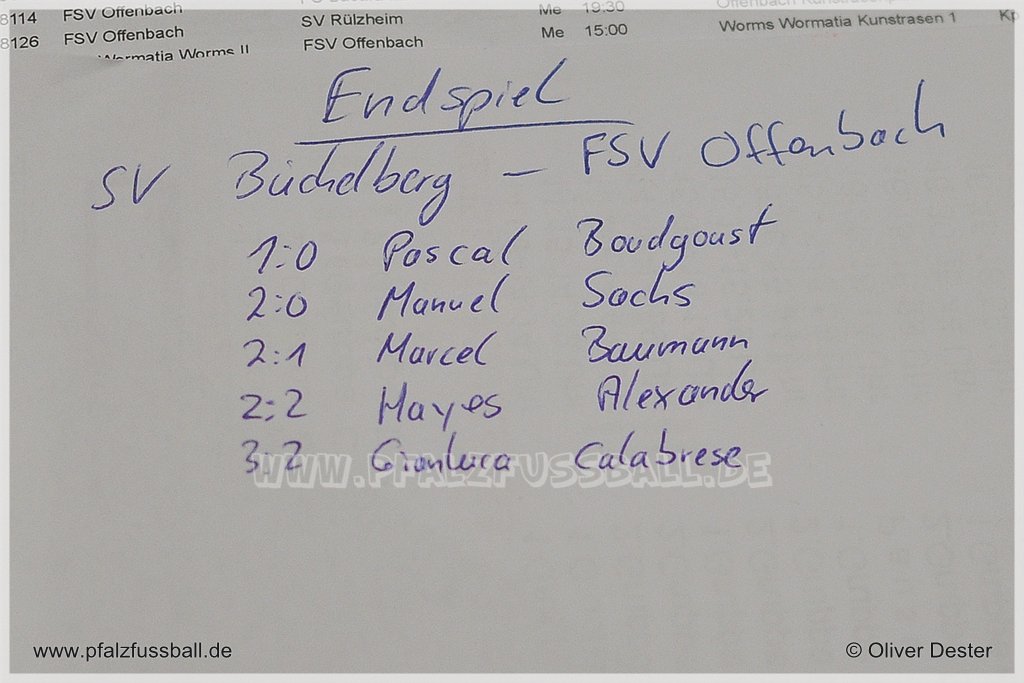 8114 FSV Offenbach SV Rülzheim Me 19:30
8126 FSV Offenbach FSV Offenbach Me 15:00 Worms Wormatia Kunstrasen 1
Wormatia Worms II
Endspiel
SV Büchelberg – FSV Offenbach
1:0 Pascal Boudgoust
2:0 Manuel Sachs
2:1 Marcel Baumann
2:2 Hayes Alexander
3:2 Gianluca Calabrese
WWW.PFALZFUSSBALL.DE
www.pfalzfussball.de © Oliver Dester